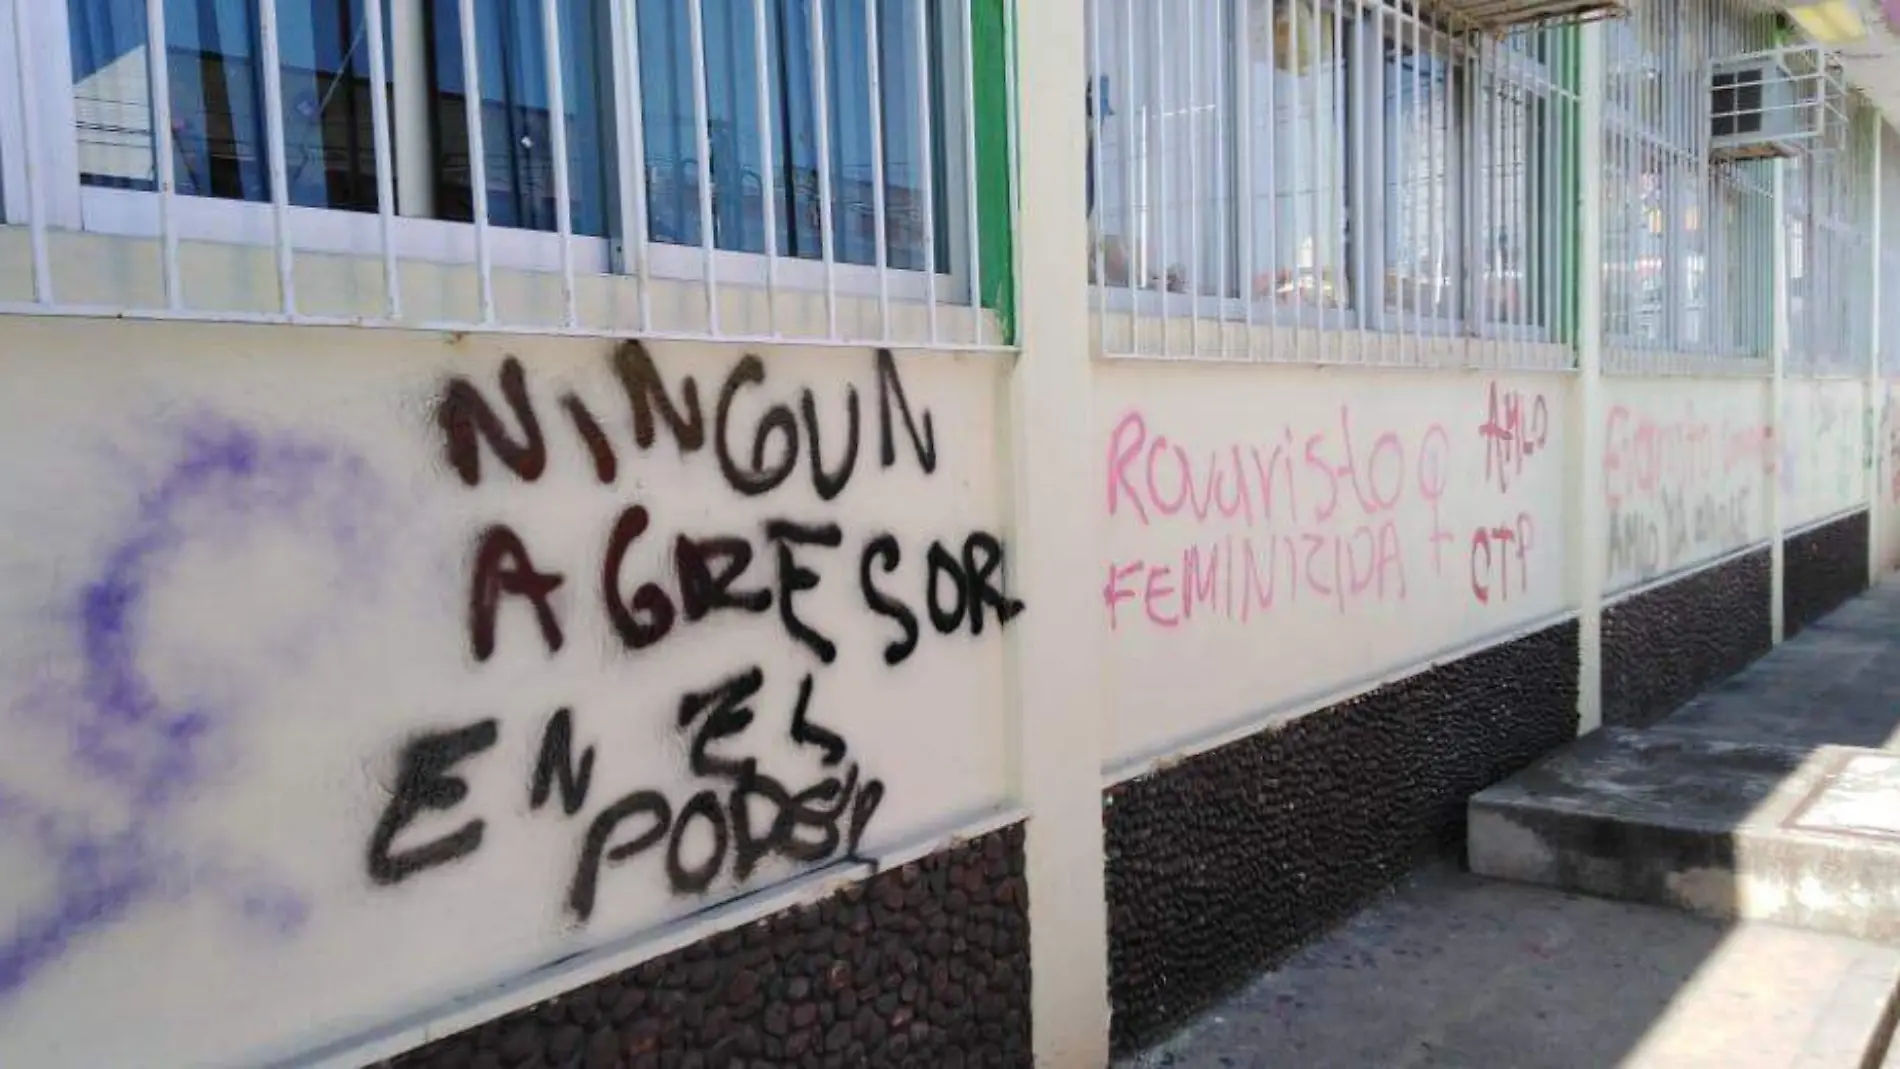 NINGUN
AGRESOR
EN EL
PODER
Rovaristo
FEMINICIDA
AMLO
CTP
AMLO